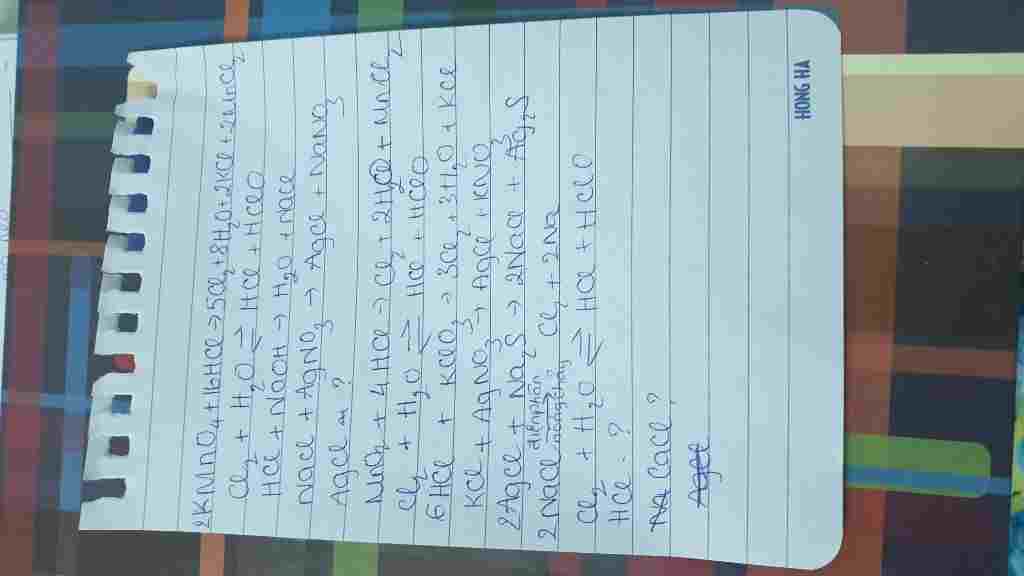 2KMnO4 + 16HCl → 5Cl2 + 8H2O + 2KCl + 2MnCl2
Cl2 + H2O ⇌ HCl + HClO
HCl + NaOH → H2O + NaCl
NaCl + AgNO3 → AgCl + NaNO3
AgCl → ?
MnO2 + 4HCl → Cl2 + 2H2O + MnCl2
Cl2 + H2O ⇌ HCl + HClO
6HCl + KClO3 → 3Cl2 + 3H2O + KCl
KCl + AgNO3 → AgCl + KNO3
2AgCl + Na2S → 2NaCl + Ag2S
2NaCl điện phân nóng chảy Cl2 + 2Na
Cl2 + H2O ⇌ HCl + HClO
HCl - ?
CaCl ?
HONG HA